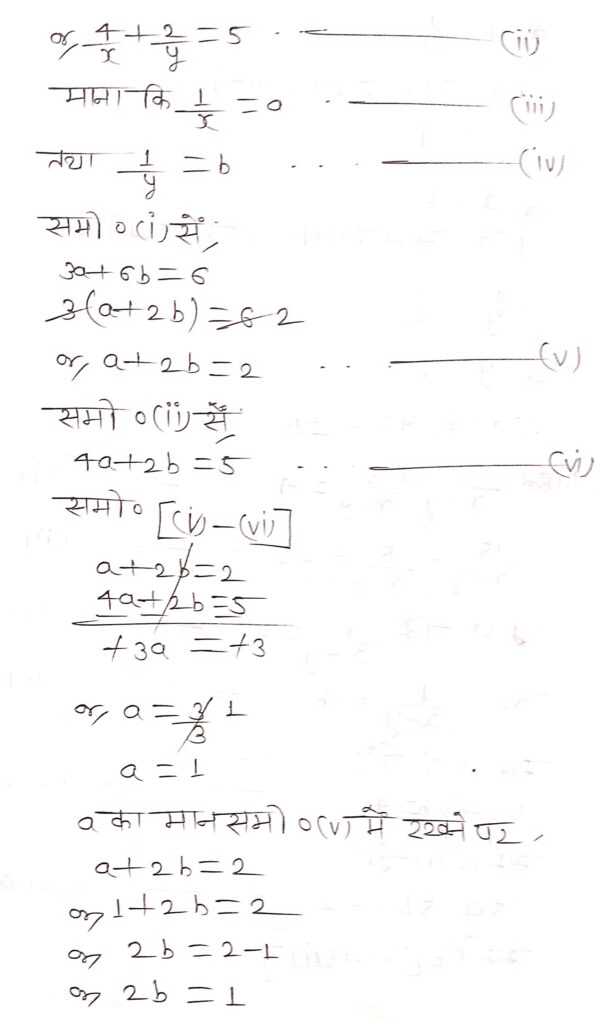 or, 4/x + 2/y = 5 . . ——— (ii)
माना कि 1/x = 0 . . ——— (iii)
तथा 1/y = b . . . ——— (iv)
समी०(i) से,
3a+6b=6
3(a+2b)=6 2
or, a+2b=2 . . . ——— (v)
समी०(ii) से,
4a+2b=5 . . ——— (vi)
समी० [(v)-(vi)]
a+2b=2
4a+2b=5
+3a = +3
or, a = 3/3 1
a = 1
a का मान समी०(v) में रखने पर,
a+2b=2
or, 1+2b=2
or, 2b=2-1
or, 2b=1